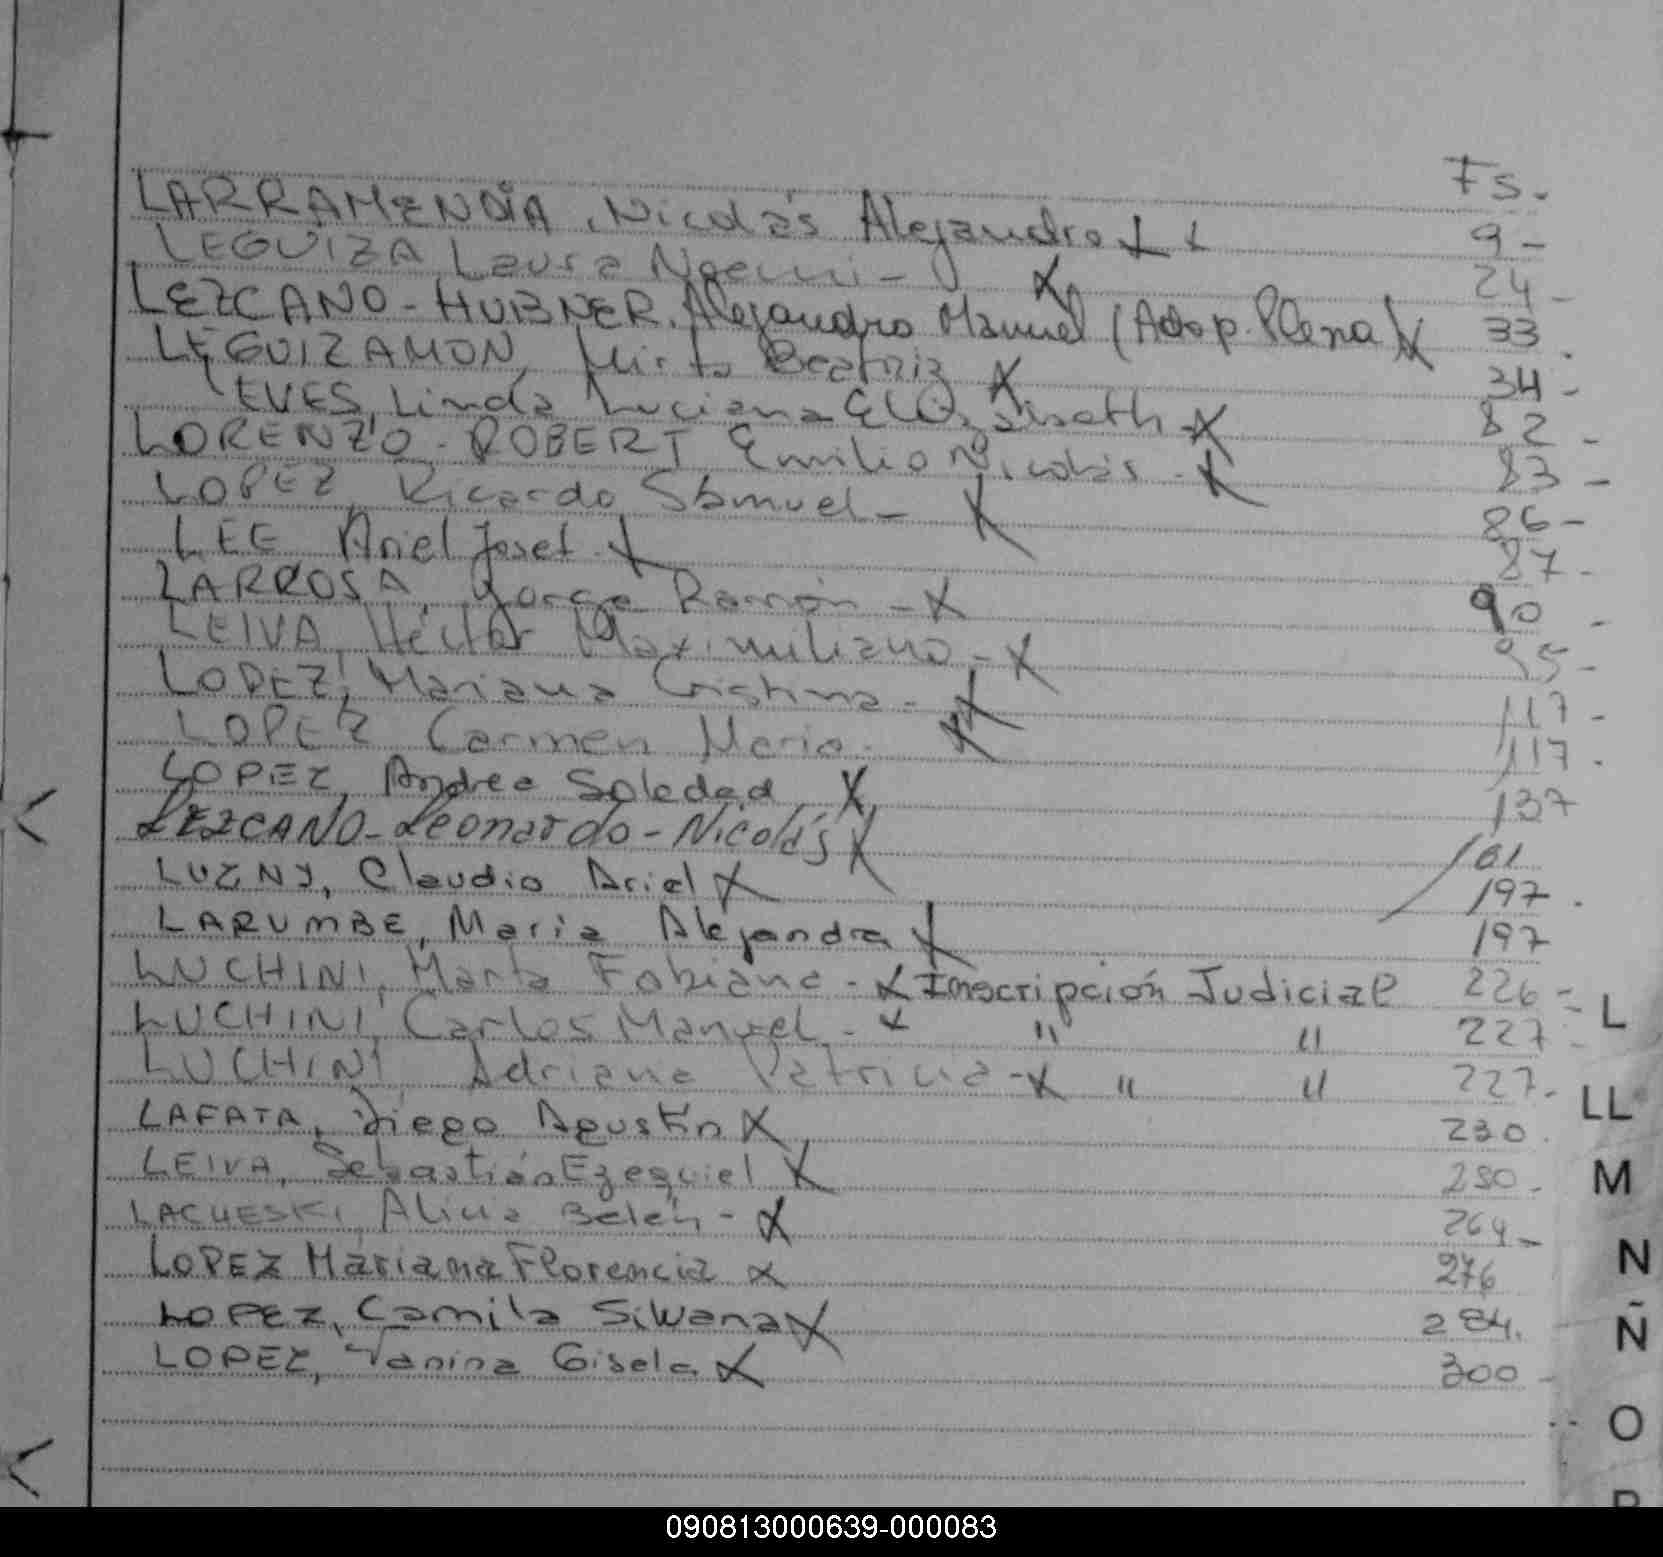 Fs.
LARRAMENDIA, Nicolás Alejandro X X 9-
LEGUIZA Laura Noemi- X 24-
LEZCANO-HUBNER, Alejandro Manuel (Adop. Plena) X 33.
LEGUIZAMON, Mirta Beatriz X 34-
LEVES, Linda Luciana Elizabeth-X 82-
LORENZO-ROBERT Emilio Nicolás-X 83-
LOPEZ, Ricardo Samuel- X 86-
LEE Ariel Josef-X 87-
LARROSA, Jorge Ramón-X 90-
LEIVA, Héctor Maximiliano-X 95-
LOPEZ, Mariana Cristina- X 117-
LOPEZ Carmen Maria. X 117.
LOPEZ, Andrea Soledad X 137
LEZCANO-Leonardo-Nicolás X 161
LUZNY, Claudio Ariel X 197.
LARUMBE, Maria Alejandra X 197
LUCHINI, Marta Fabiana-X Inscripción Judicial 226-
LUCHINI, Carlos Manuel-X " " 227-
LUCHINI Adriana Patricia-X " " 227-
LAFATA, Diego Agustín X 230.
LEIVA, Sebastián Ezequiel X 250-
LACHESKI, Alicia Belén-X 264-
LOPEZ Mariana Florencia X 276
LOPEZ, Camila Silvana X 284.
LOPEZ, Yanina Gisela X 300-
L
LL
M
N
Ñ
O
P
090813000639-000083